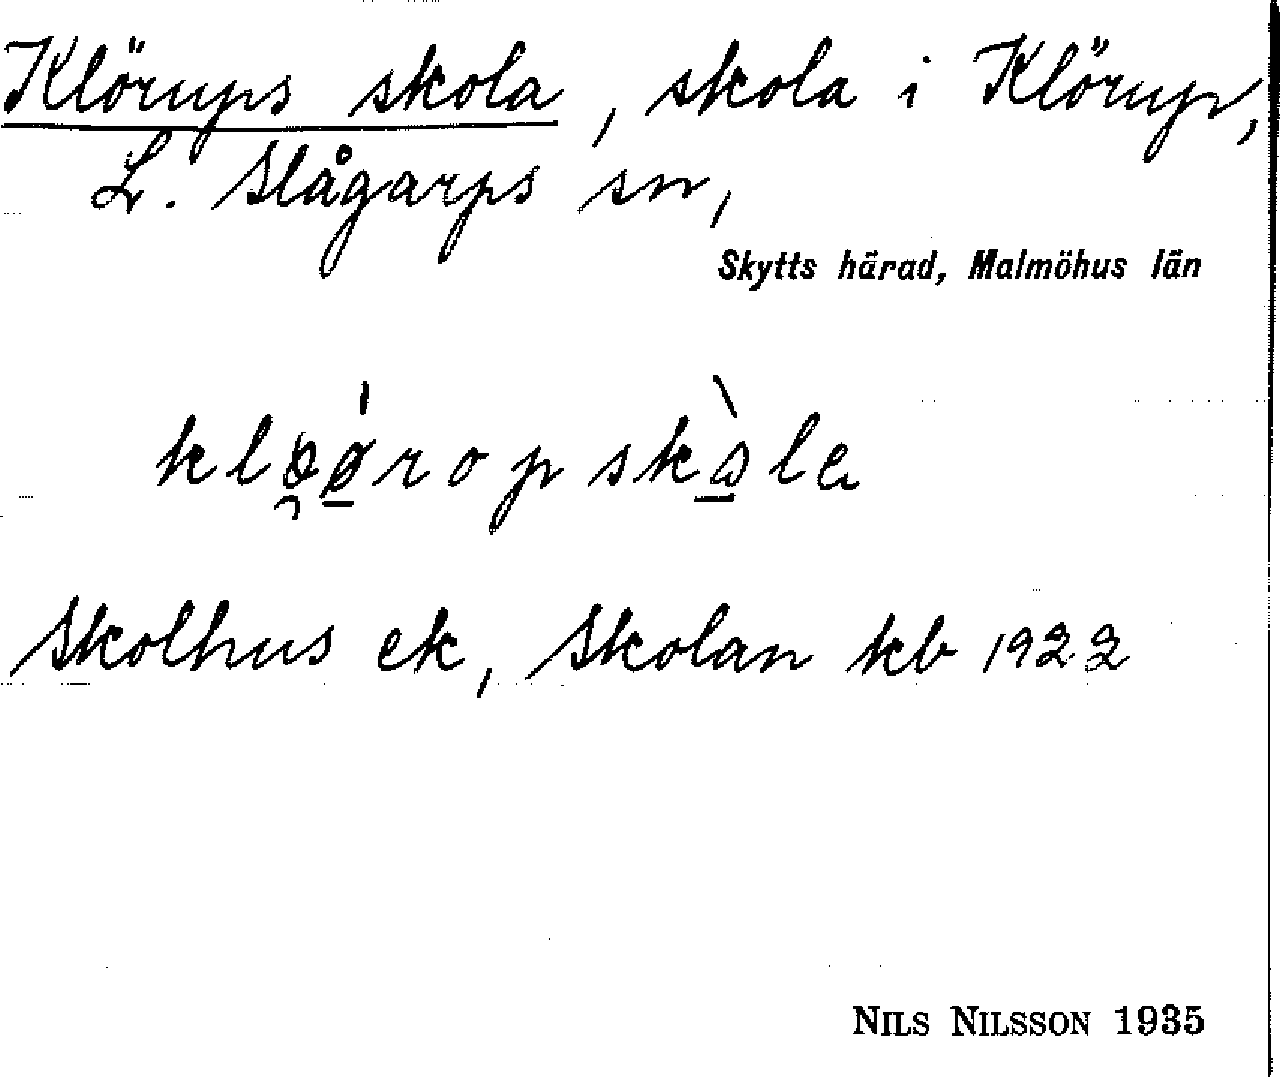 Klörups skola, skola i Klörup,
L. Slågarps sn,
Skytts härad, Malmöhus län
Skolhus ek, Skolan kb 1922
NILS NILSSON 1935